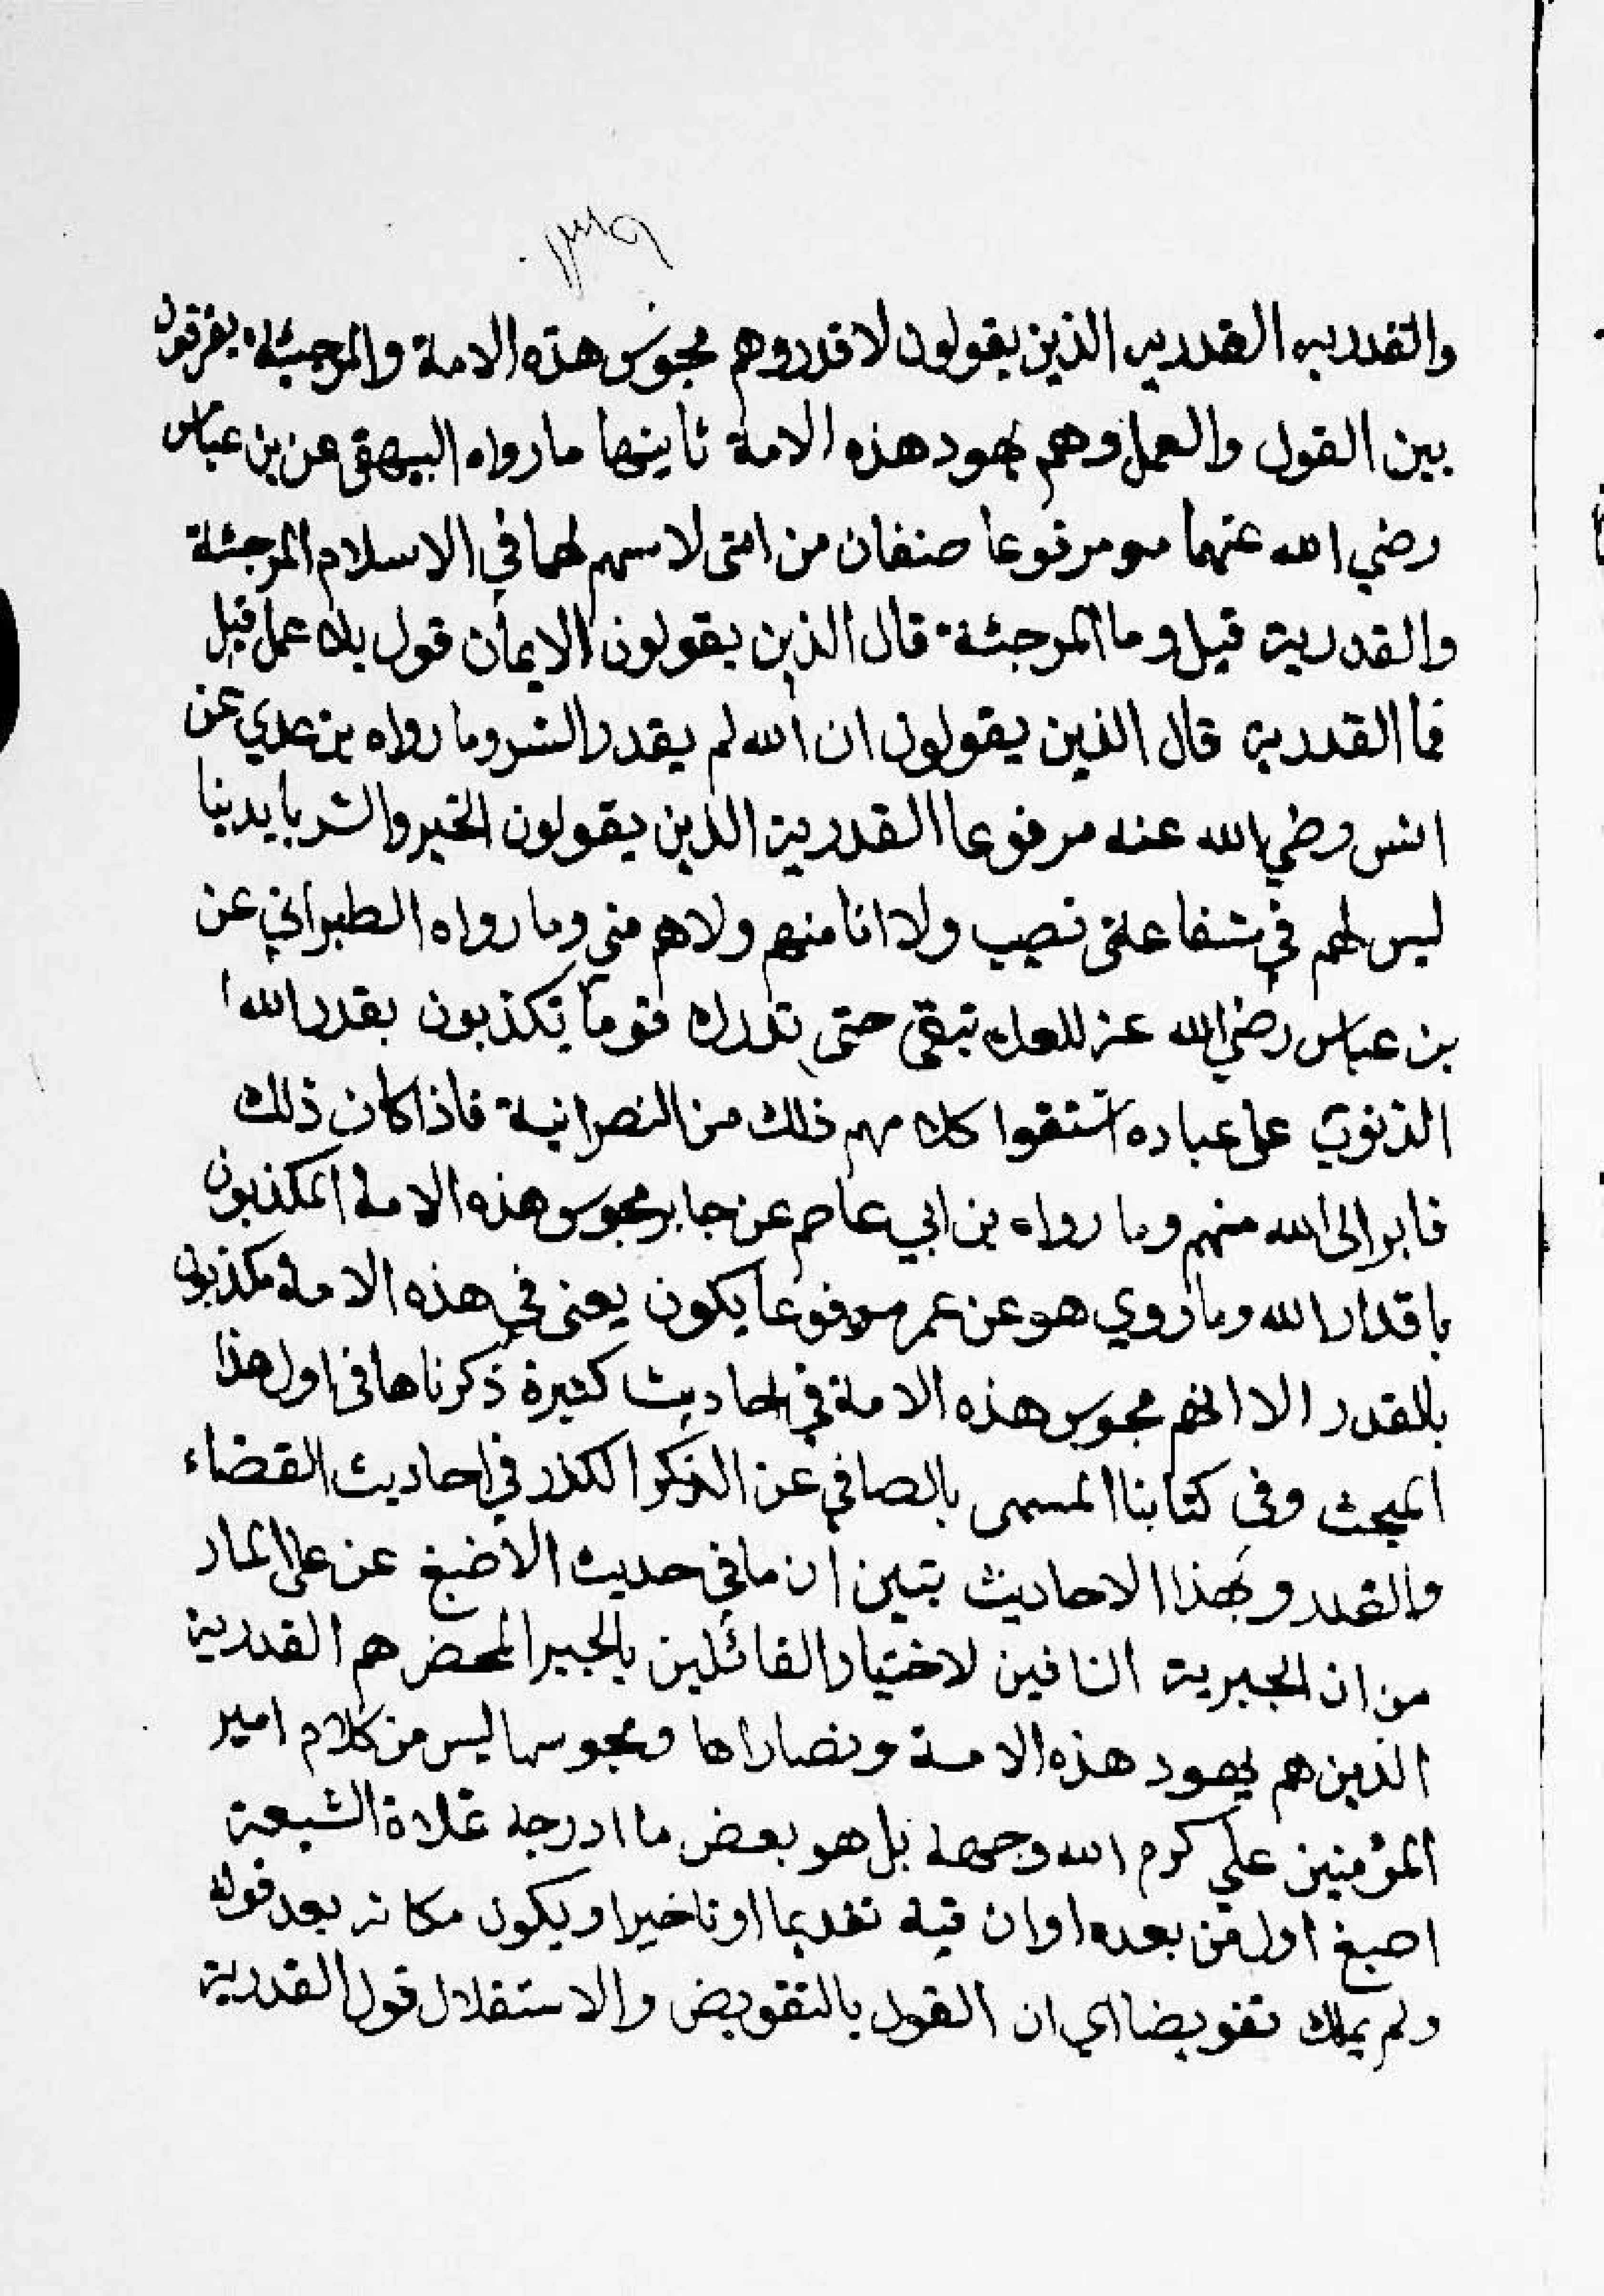 والقدريه القدريه الذين يقولون لا قدر وهم مجوس هذه الامة والمرجئة يفرقون
بين القول والعمل وهم يهود هذه الامة ثانيها ما رواه البيهقى عن بن عباس
رضي الله عنهما مرفوعا صنفان من امتى لا سهم لهما في الاسلام المرجئة
والقدرية قيل وما المرجئة قال الذين يقولون الايمان قول بلا عمل قيل
فما القدرية قال الذين يقولون ان الله لم يقدر الشر وما رواه بن عدي عن
انس رضي الله عنه مرفوعا القدرية الذين يقولون الخير والشر بايدينا
ليس لهم في شفاعتى نصيب ولا انا منهم ولا هم منى وما رواه الطبراني عن
بن عباس رضي الله عنه لعلك تبقى حتى تدرك قوما يكذبون بقدر الله
الذنوب على عباده استقوا كلامهم ذلك من النصرانية فاذا كان ذلك
فابرا الى الله منهم وما رواه بن ابي عاصم عن جابر مجوس هذه الامة المكذبون
باقدار الله وما روي هو عن عمر مرفوعا يكون يعنى في هذه الامة مكذبون
بالقدر الا انهم مجوس هذه الامة في احاديث كثيرة ذكرناها فى اول هذا
المبحث وفى كتابنا المسمى بالصافي عن الكدر في احاديث القضاء
والقدر وبهذا الاحاديث يتبين ان ما في حديث الاضبغ عن على المار
من ان الجبرية النافين لاختيار القائلين بالجبر المحض هم القدرية
الذين هم يهود هذه الامة ونصاراها ومجوسها ليس من كلام امير
المؤمنين علي كرم الله وجهه بل هو بعض ما ادرجه غلاة الشيعة
اصبغ اول من بعده او ان فيه تقديما او تاخيرا ويكون مكانه بعد قوله
ولم يملك تفويضا اي ان القول بالتفويض والاستقلال قول القدرية